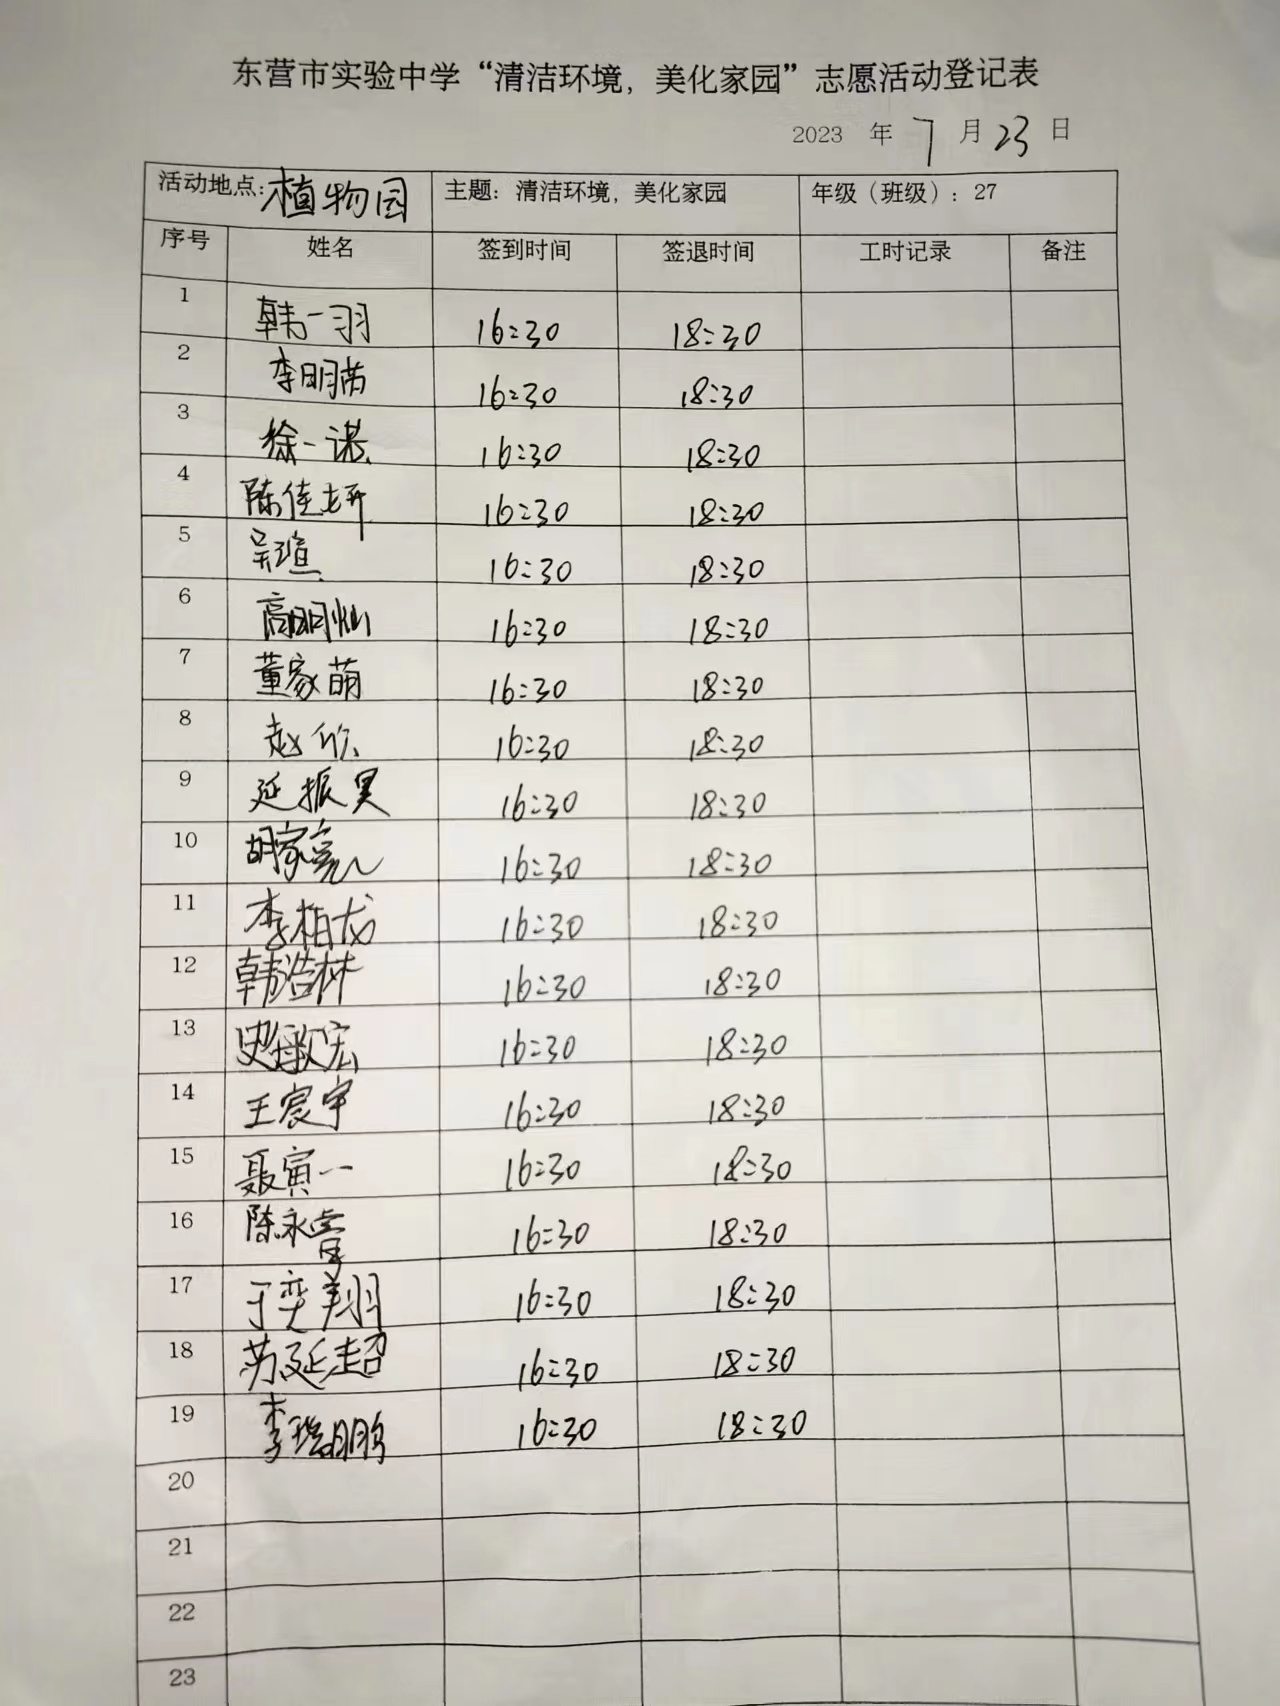 东营市实验中学“清洁环境，美化家园”志愿活动登记表
2023 年 7 月 23 日
活动地点:植物园 主题：清洁环境，美化家园 年级（班级）：27
序号 姓名 签到时间 签退时间 工时记录 备注
1 韩一羽 16:30 18:30
2 李明芮 16:30 18:30
3 徐一诺 16:30 18:30
4 陈佳妍 16:30 18:30
5 吴瑄 16:30 18:30
6 高明灿 16:30 18:30
7 董家萌 16:30 18:30
8 赵欣 16:30 18:30
9 延振昊 16:30 18:30
10 胡家亮 16:30 18:30
11 李柏龙 16:30 18:30
12 韩浩林 16:30 18:30
13 史 宏 16:30 18:30
14 王宸宇 16:30 18:30
15 聂寅一 16:30 18:30
16 陈永 16:30 18:30
17 于奕翔 16:30 18:30
18 苏延超 16:30 18:30
19 李瑞鹏 16:30 18:30
20
21
22
23